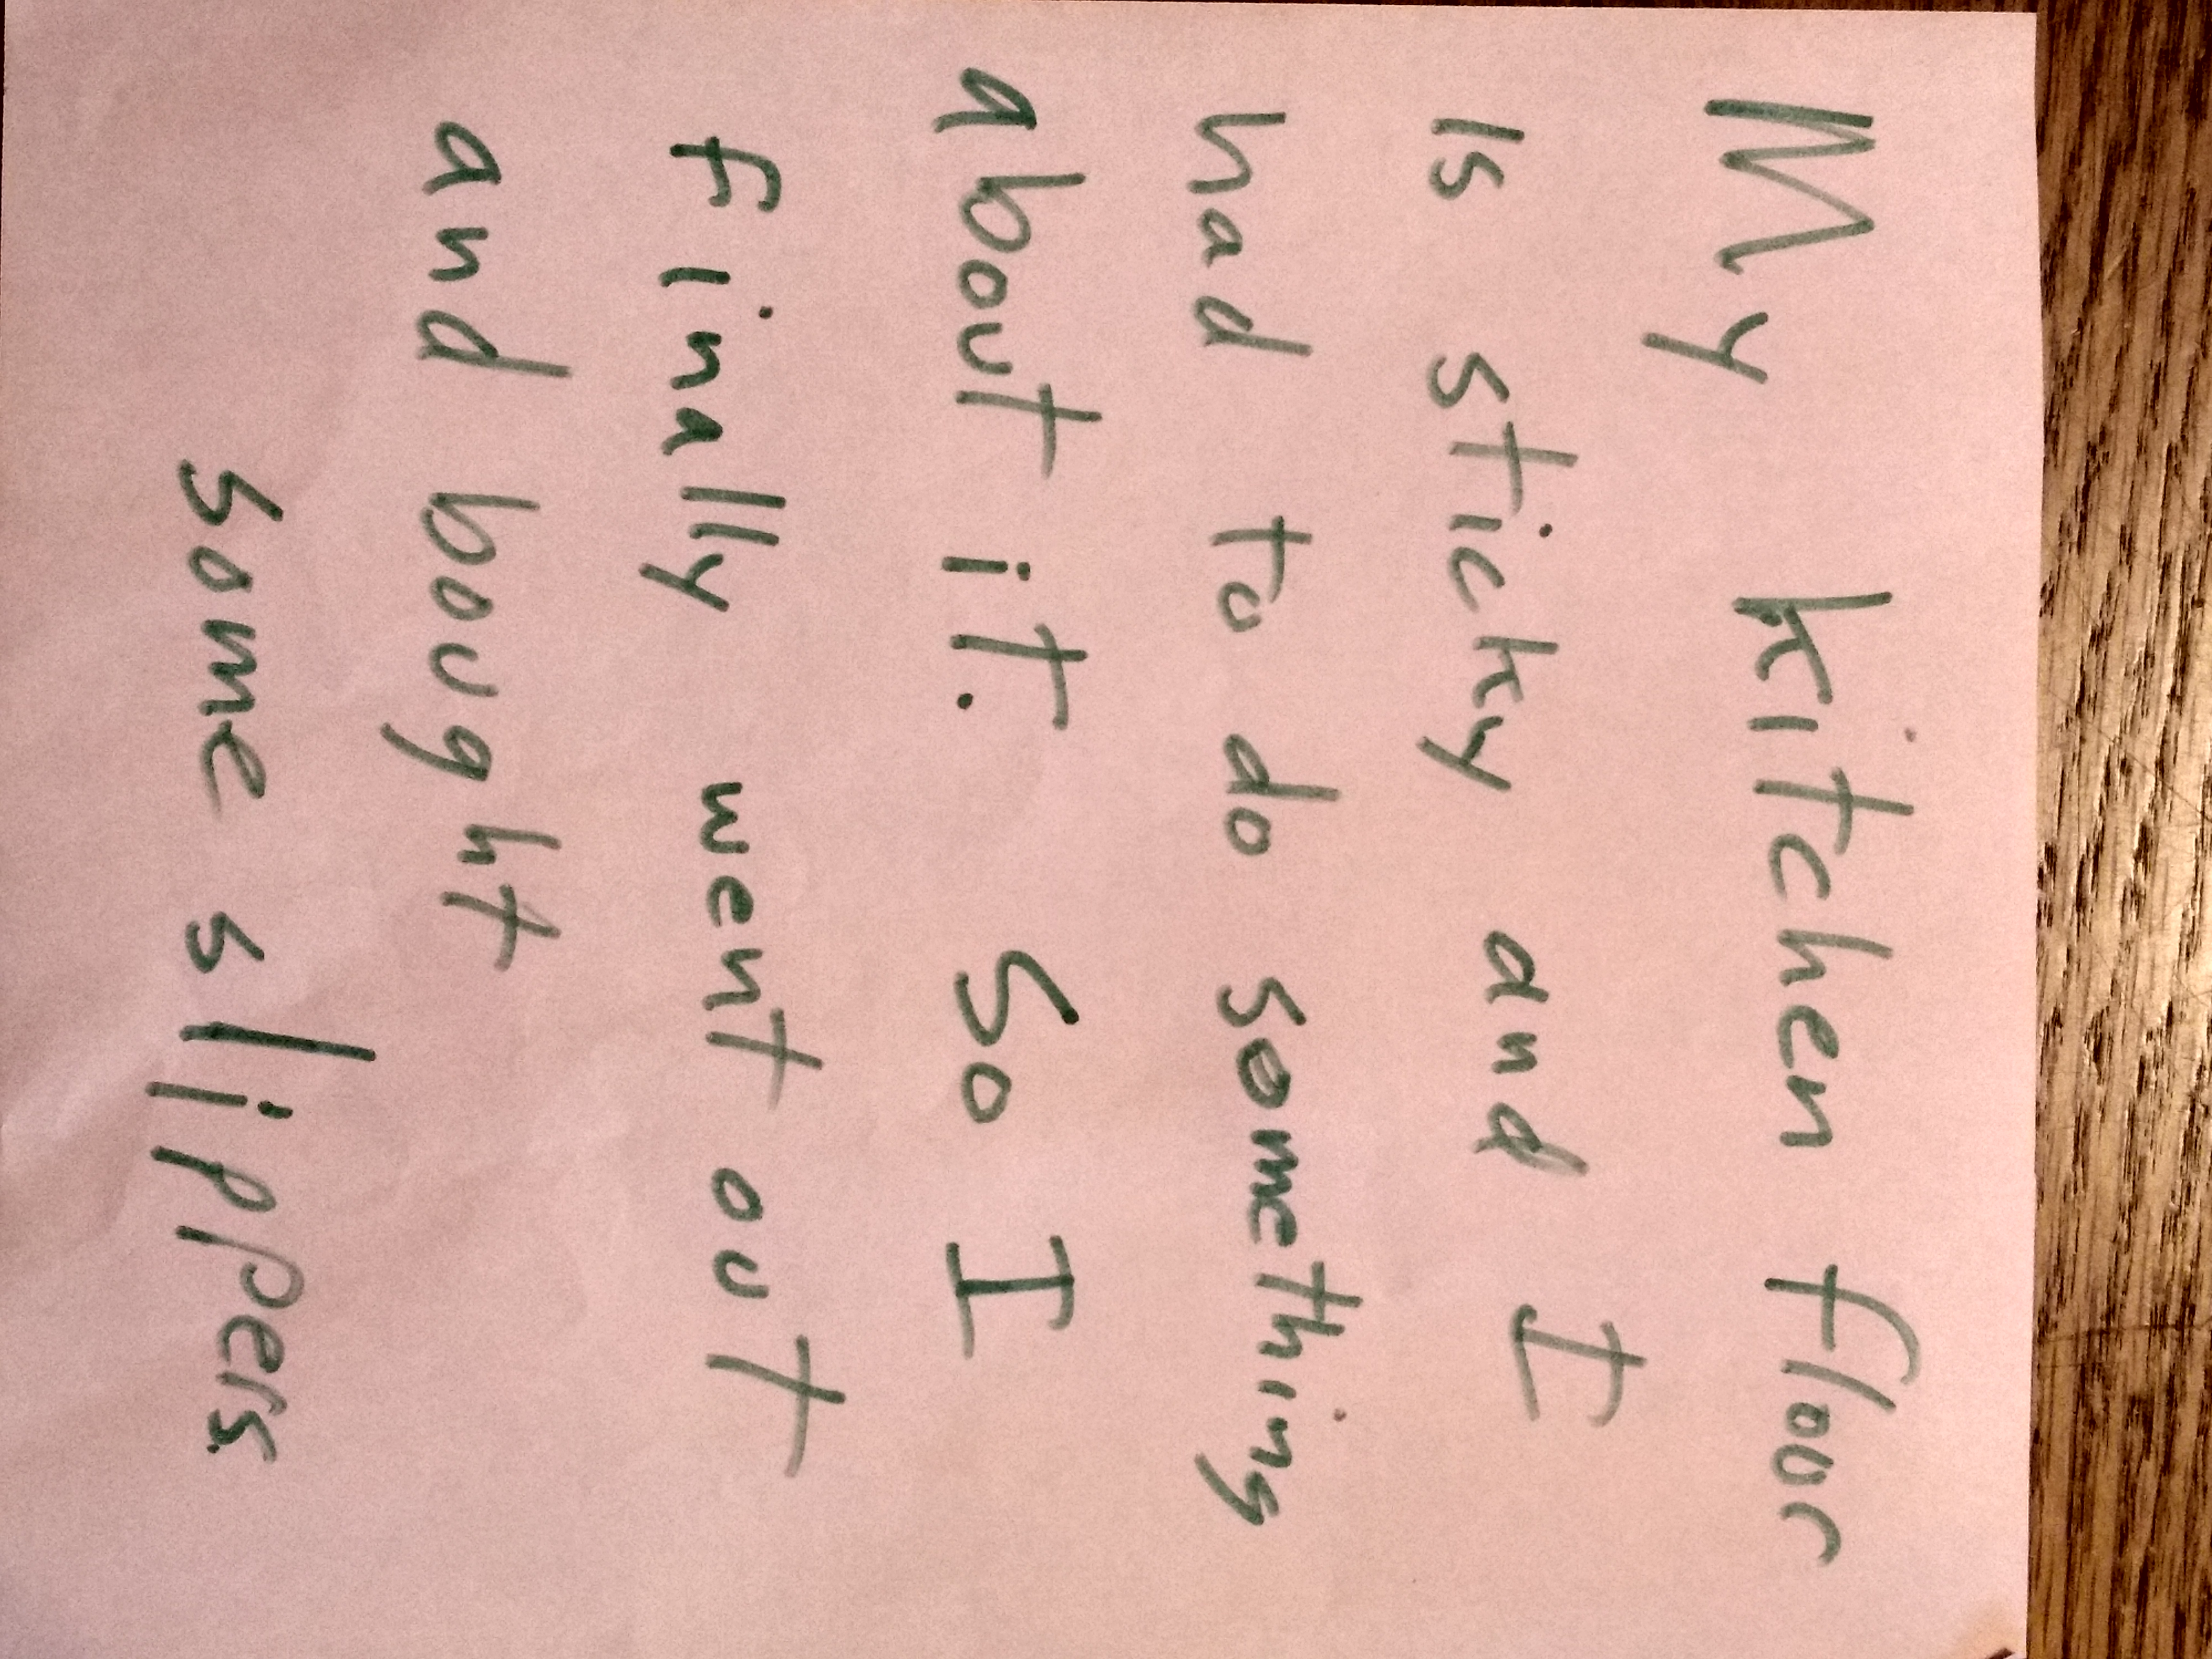 My kitchen floor
is sticky and I
had to do something
about it. So I
finally went out
and bought
some slippers.